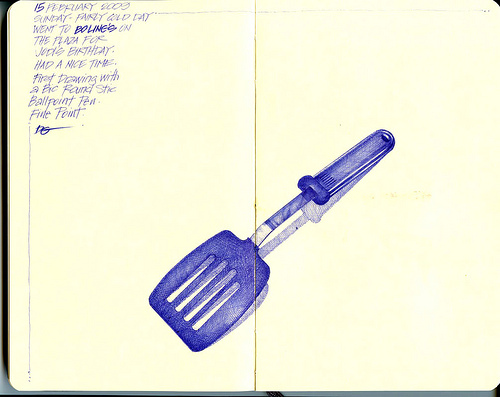 15 FEBRUARY 2009
SUNDAY - FAIRLY COLD DAY
WENT TO BO LINGS ON
THE PLAZA FOR
JODY'S BIRTHDAY.
HAD A NICE TIME.
First Drawing with
a Bic Round Stic
Ballpoint Pen.
Fine Point.